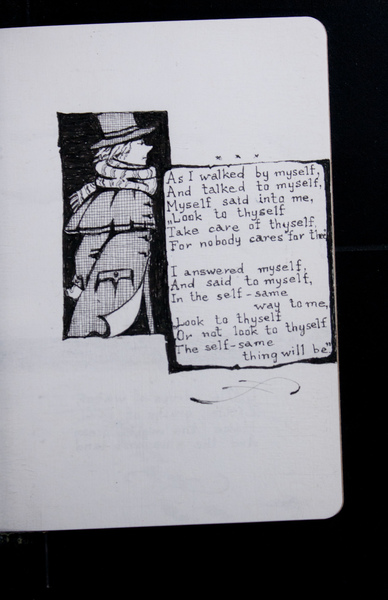 * * *
As I walked by myself,
And talked to myself,
Myself said into me,
„Look to thyself
Take care of thyself.
For nobody cares for thee.

I answered myself,
And said to myself,
In the self-same
way to me,
Look to thyself
Or not look to thyself
The self-same
thing will be"